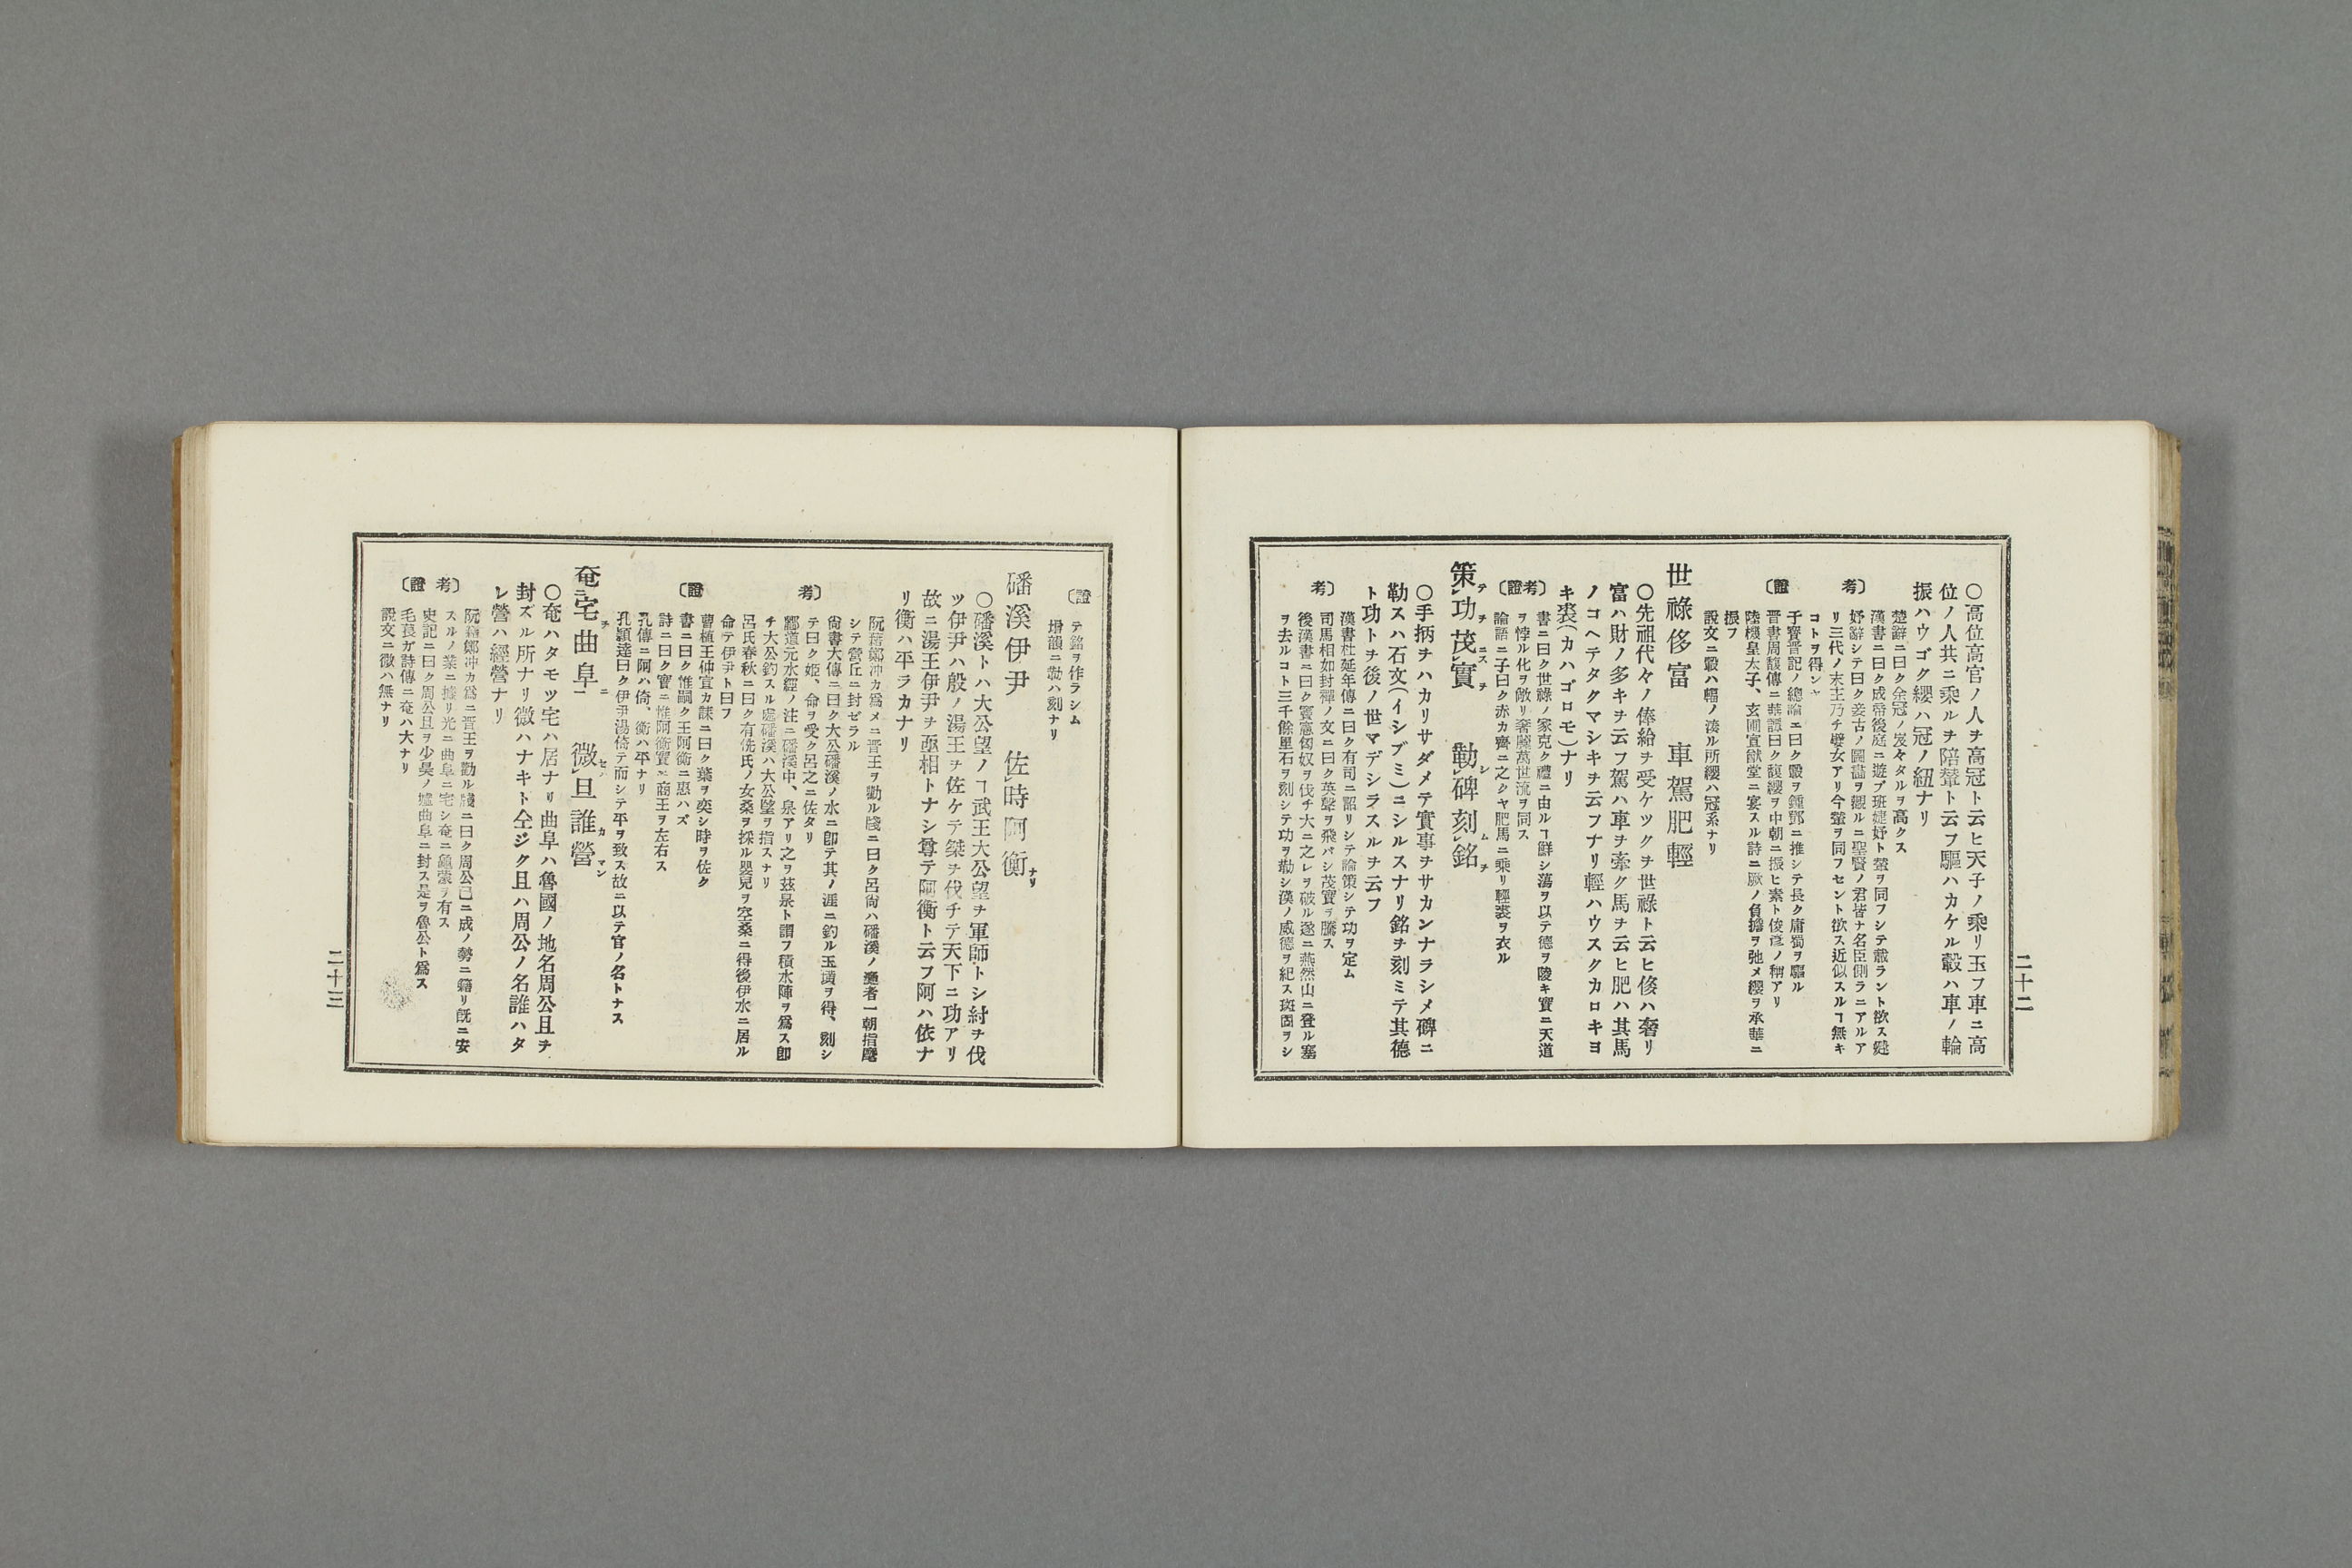 ○高位高官ノ人ヲ高冠ト云ヒ天子ノ乘リ玉フ車ニ高
位ノ人共ニ乘ルヲ陪輦ト云フ驅ハカケル轂ハ車ノ輪
振ハウゴク纓ハ冠ノ紐ナリ
〔考
楚辭ニ曰ク余冠ノ岌々タルヲ高クス
漢書ニ曰ク成帝後庭ニ遊ブ班婕妤ト輦ヲ同フシテ載ラント欲ス婕
妤辭シテ曰ク妾古ノ圖畵ヲ觀ルニ聖賢ノ君皆ナ名臣側ラニアルア
リ三代ノ末主乃チ嬖女アリ今輦ヲ同フセント欲ス近似スルヿ無キ
コトヲ得ンヤ
證〕
子寶晋記ノ總論ニ曰ク轂ヲ鍾鄧ニ推シテ長ク庸蜀ヲ驅ル
晋書周馥傳ニ華譚曰ク馥纓ヲ中朝ニ振ヒ素ト俊彦ノ稱アリ
陸機皇太子、玄圃宣猷堂ニ宴スル詩ニ厥ノ負擔ヲ弛メ纓ヲ承華ニ
振フ
說文ニ轂ハ輻ノ湊ル所纓ハ冠系ナリ
世祿侈富　車駕肥輕
○先祖代々ノ俸給ヲ受ケツグヲ世祿ト云ヒ侈ハ奢リ
富ハ財ノ多キヲ云フ駕ハ車ヲ牽グ馬ヲ云ヒ肥ハ其馬
ノコヘテタクマシキヲ云フナリ輕ハウスクカロキヨ
キ裘(カハゴロモ)ナリ
〔考證〕
書ニ曰ク世祿ノ家克ク禮ニ由ルヿ鮮シ蕩ヲ以テ德ヲ陵キ實ニ天道
ヲ悖ル化ヲ敝リ奢麗萬世流ヲ同ス
論語ニ子曰ク赤カ齊ニ之クヤ肥馬ニ乘リ輕裘ヲ衣ル
策テ功ヲ茂ニスレ實ヲ　勒シ碑刻ムレ銘ヲ
○手柄ヲハカリサダメテ實事ヲサカンナラシメ碑ニ
勒スハ石文(イシブミ)ニシルスナリ銘ヲ刻ミテ其德
ト功トヲ後ノ世マデシラスルヲ云フ
〔考
漢書杜延年傳ニ曰ク有司ニ詔リシテ論策シテ功ヲ定ム
司馬相如封禪ノ文ニ曰ク英聲ヲ飛バシ茂實ヲ騰ス
後漢書ニ曰ク竇憲匈奴ヲ伐チ大ニ之レヲ破ル遂ニ燕然山ニ登ル塞
ヲ去ルコト三千餘里石ヲ刻シテ功ヲ勒シ漢ノ威德ヲ紀ス班固ヲシ
二十二
證〕
テ銘ヲ作ラシム
増韻ニ勒ハ刻ナリ
磻溪伊尹　佐レ時阿衡ナリ
○磻溪トハ大公望ノヿ武王大公望ヲ軍師トシ紂ヲ伐
ツ伊尹ハ殷ノ湯王ヲ佐ケテ桀ヲ伐チテ天下ニ功アリ
故ニ湯王伊尹ヲ亟相トナシ尊テ阿衡ト云フ阿ハ依ナ
リ衡ハ平ラカナリ
〔考
阮籍鄭冲カ爲メニ晋王ヲ勸ル牋ニ曰ク呂尙ハ磻溪ノ漁者一朝指麾
シテ營丘ニ封ゼラル
尙書大傳ニ曰ク大公磻溪ノ水ニ卽テ其ノ涯ニ釣ル玉璜ヲ得、刻シ
テ曰ク姫、命ヲ受ク呂之ニ佐タリ
酈道元水經ノ注ニ磻溪中、泉アリ之ヲ玆泉ト謂フ積水陣ヲ爲ス卽
チ大公釣スル處磻溪ハ大公望ヲ指スナリ
呂氏春秋ニ曰ク有侁氏ノ女桑ヲ採ル嬰兒ヲ空桑ニ得後伊水ニ居ル
命テ伊尹ト曰フ
證〕
曹植王仲宣カ誄ニ曰ク葉ヲ奕シ時ヲ佐ク
書ニ曰ク惟嗣ク王阿衡ニ惠ハズ
詩ニ曰ク實ニ惟阿衡實ニ商王ヲ左右ス
孔傳ニ阿ハ倚、衡ハ平ナリ
孔穎達曰ク伊尹湯倚テ而シテ平ヲ致ス故ニ以テ官ノ名トナス
奄ニ宅ヲ曲阜ニ一　微セバ旦誰カ營マン
○奄ハタモツ宅ハ居ナリ曲阜ハ魯國ノ地名周公旦ヲ
封ズル所ナリ微ハナキト仝ジク旦ハ周公ノ名誰ハタ
レ營ハ經營ナリ
〔考
阮籍鄭冲カ爲ニ晋王ヲ勸ル牋ニ曰ク周公已ニ成ノ勢ニ藉リ旣ニ安
スルノ業ニ據リ光ニ曲阜ニ宅シ奄ニ龜蒙ヲ有ス
史記ニ曰ク周公旦ヲ少昊ノ墟曲阜ニ封ス是ヲ魯公ト爲ス
證〕
毛萇ガ詩傳ニ奄ハ大ナリ
說文ニ微ハ無ナリ
二十三